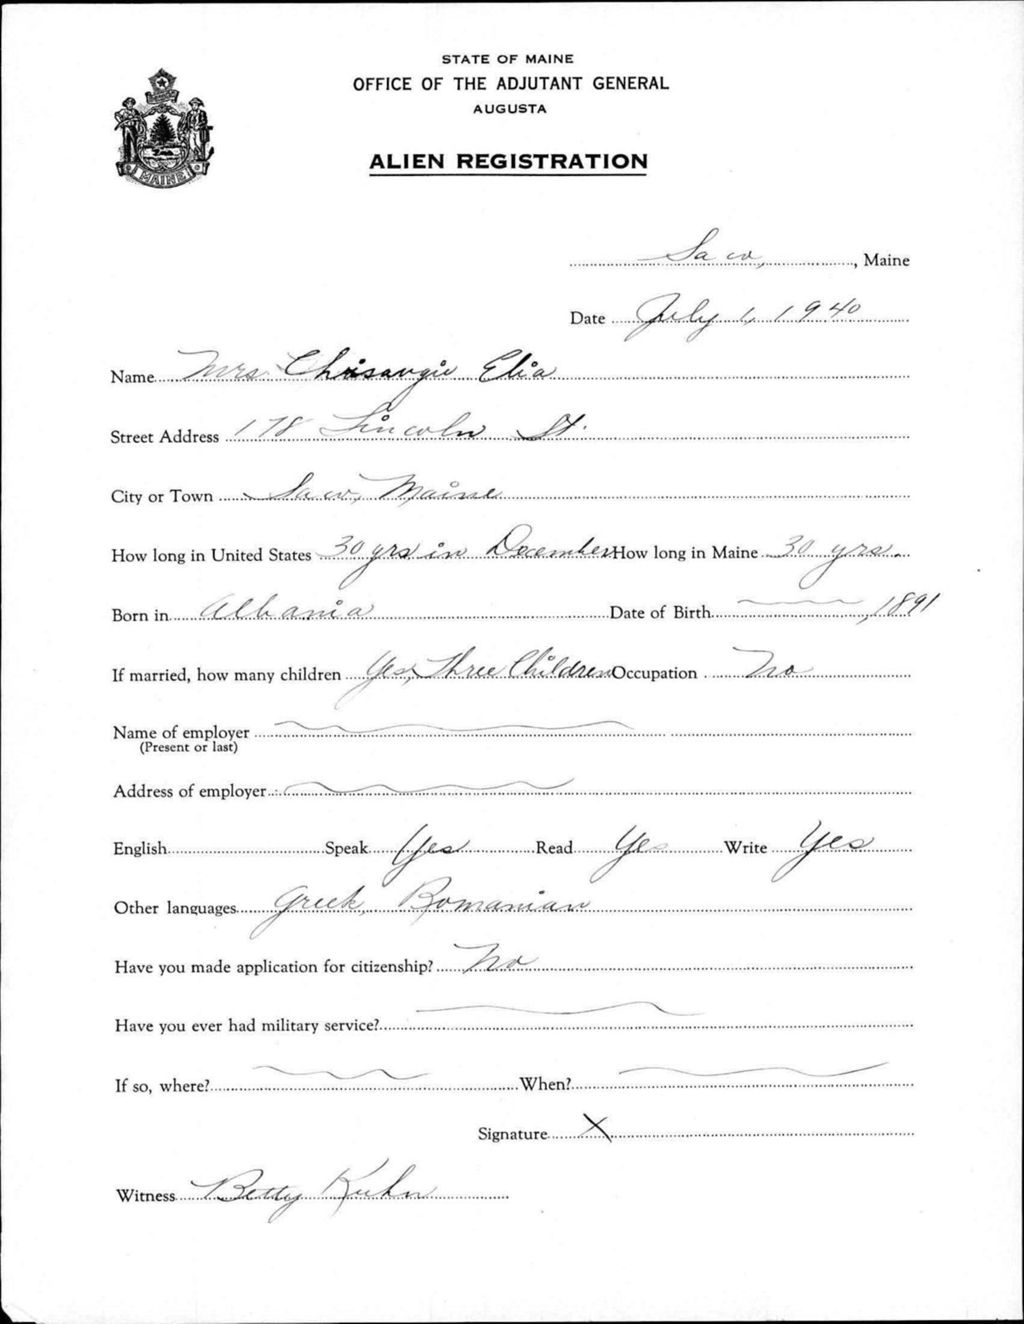 STATE OF MAINE
OFFICE OF THE ADJUTANT GENERAL
AUGUSTA
ALIEN REGISTRATION
MAINE
Saco, , Maine
Date July 1, 1940
Name Mrs Chrisavgie Elia
Street Address 178 Lincoln St.
City or Town Saco, Maine
How long in United States 30 yrs in December How long in Maine 30 yrs.
Born in Albania Date of Birth , 1891
If married, how many children Yes, Three Children Occupation No
Name of employer
(Present or last)
Address of employer
English Speak Yes Read Yes Write Yes
Other languages Greek, Romanian
Have you made application for citizenship? No
Have you ever had military service?
If so, where? When?
Signature X
Witness Betty Kuhn